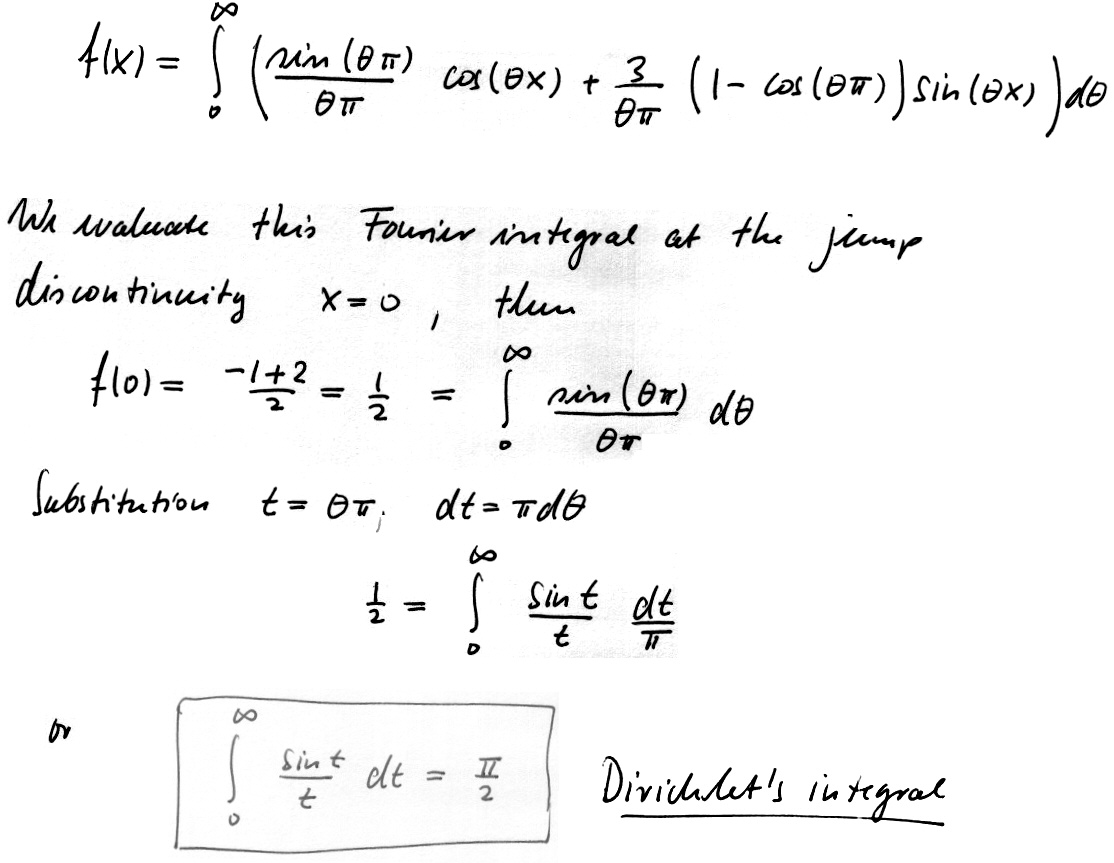 f(x) = ∫₀^∞ ( sin(θπ)/(θπ) cos(θx) + 3/(θπ) (1 - cos(θπ)) sin(θx) ) dθ
We evaluate this Fourier integral at the jump
discontinuity x = 0, then
f(0) = (-1+2)/2 = 1/2 = ∫₀^∞ sin(θπ)/(θπ) dθ
Substitution t = θπ; dt = π dθ
1/2 = ∫₀^∞ sin t / t dt/π
or ∫₀^∞ sin t / t dt = π/2 Dirichlet's integral